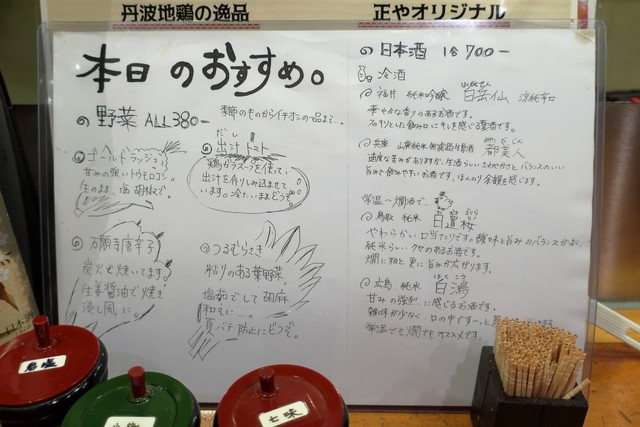 丹波地鶏の逸品
正やオリジナル
本日のおすすめ。
の野菜 ALL380-
季節のものからイチオシの一品まで…
ゴールドラッシュ
甘みの強いトウモロコシ。
生のまま、塩 胡椒で。
だし
出汁トマト
鶏ガラスープを使って、
出汁をしみ込ませて
います。冷たいままどうぞ。
万願寺唐辛子
炭火で焼いてます。
生姜醤油で焼き
浸し風に。
つるむらさき
粘りのある葉野菜
塩茹でして胡麻
和えに…。
夏バテ防止にどうぞ。
の日本酒 1合700-
冷酒
福井 純米吟醸 白岳仙
華やかな香りのあるお酒です。
スッキリとした飲み口にキレを感じる夏酒です。
兵庫 山廃純米 無濾過生原酒 都美人
適度な重みがありますが、生酒らしいさわやかさとバランスのいい
旨みで飲みやすいお酒です。ほんのり余韻を感じます。
常温〜燗酒で…
鳥取 純米
やわらかい口当たりです。酸味と旨みのバランスがよく、
純米らしいクセのあるお酒です。
燗にすると更に旨みが広がります。
広島 純米 白鴻
はくこう
甘みの強さに感じるお酒です。
雑味が少なく、口の中でスーっと
常温でも燗でもオススメです。
岩塩
七味